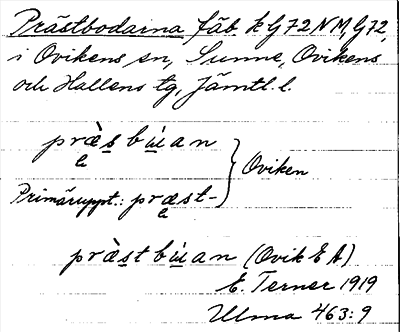 Prästbodarna fäb. k G 72 NM, G 72,
i Ovikens sn, Sunne, Ovikens
och Hallens tg, Jämtl. l.
præ̀sbu̇an
Oviken
Primäruppt.: præst-
præ̀stbu̇an (Ovik E A)
E. Terner 1919
Ulma 463:9